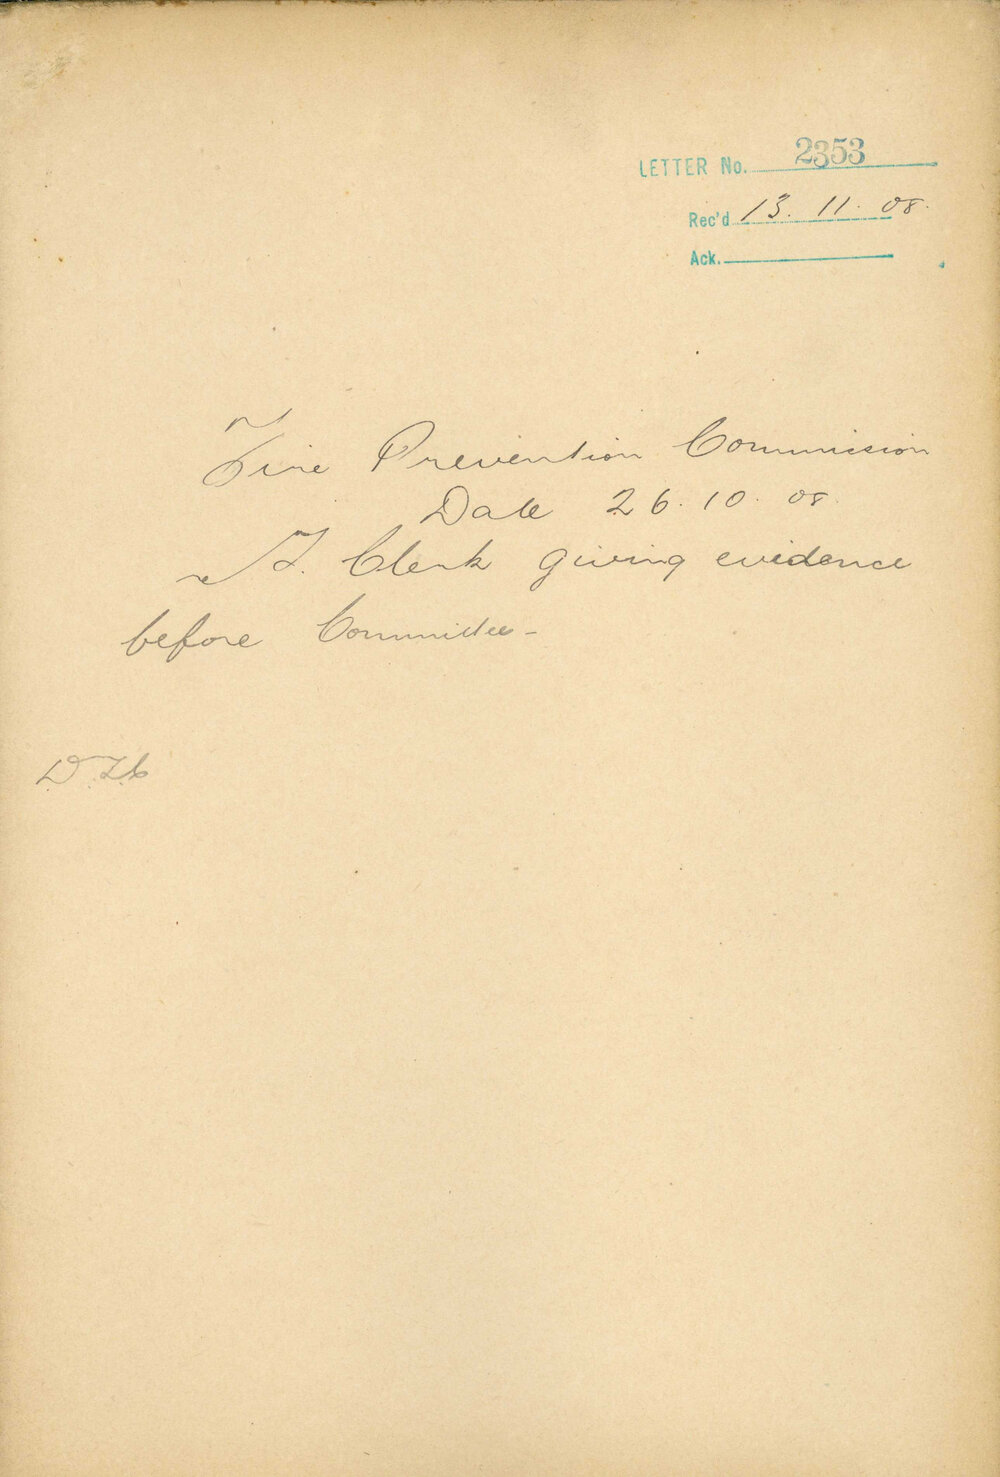 LETTER No. 2353
Rec'd 13. 11. 08.
Ack.
Fire Prevention Commission
Date 26. 10. 08.
T. Clerk giving evidence
before Committee -